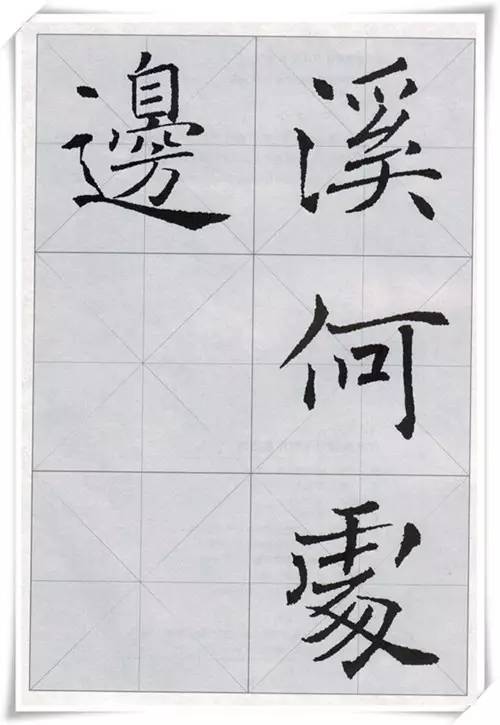 溪何處
邊